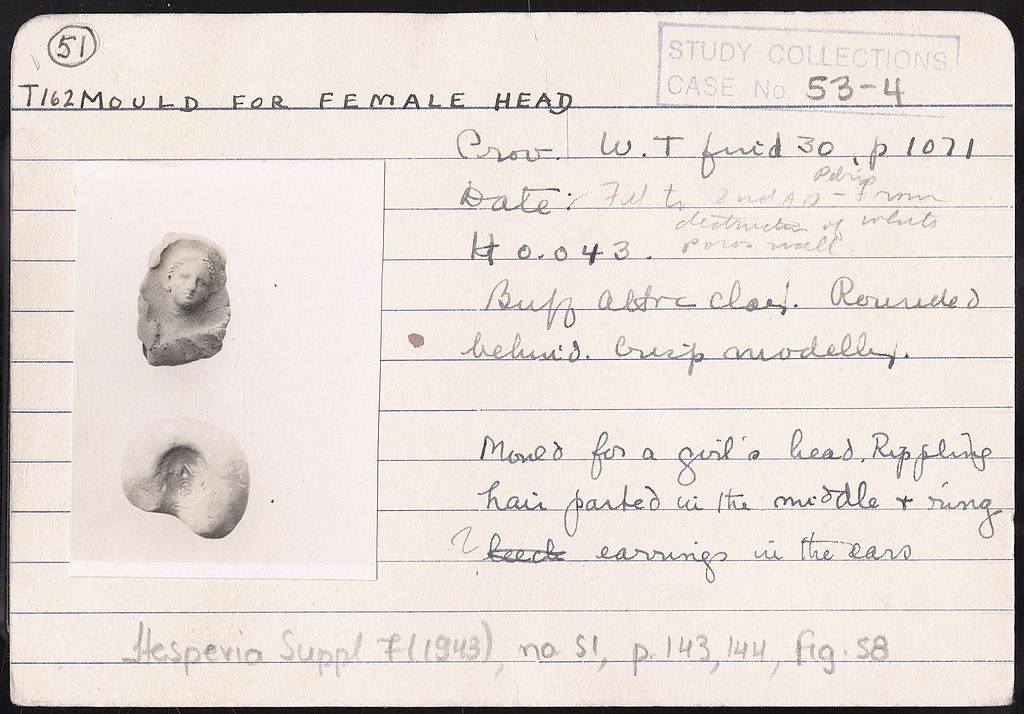 51
STUDY COLLECTIONS
CASE No. 53-4
T162 MOULD FOR FEMALE HEAD
Prov. W.T find 30, p 1071
Date: Fill to 2nd AD - From
destruction of white
poros wall.
H 0.043.
Buff Attic clay. Rounded
behind. Crisp modelling.
Mould for a girl's head. Rippling
hair parted in the middle + ring
? earrings in the ears
Hesperia Suppl 7 (1943), no. 51, p. 143, 144, fig. 58